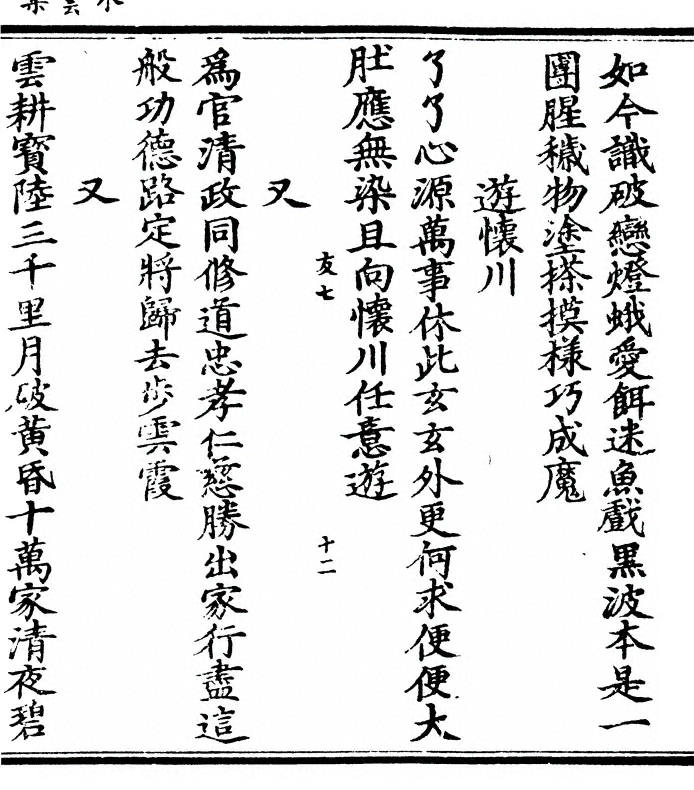 如今識破戀燈蛾愛餌迷魚戲黑波本是一
團腥穢物塗搽摸樣巧成魔
遊懷川
了了心源萬事休此玄玄外更何求便便大
肚應無染且向懷川任意遊
友七
十二
又
為官清政同修道忠孝仁慈勝出家行盡這
般功德路定將歸去步雲霞
又
雲耕寶陸三千里月破黃昏十萬家清夜碧